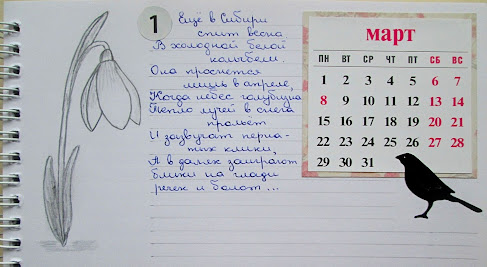 1
Ещё в Сибири
спит весна
В холодной белой
колыбели.
Она проснется
лишь в апреле,
Когда небес голубизна
Тепло лучей в снега
прольет
И зазвучат перна-
тых клики,
А в далях заиграют
блики на глади
речек и болот...
март
ПН ВТ СР ЧТ ПТ СБ ВС
1 2 3 4 5 6 7
8 9 10 11 12 13 14
15 16 17 18 19 20 21
22 23 24 25 26 27 28
29 30 31